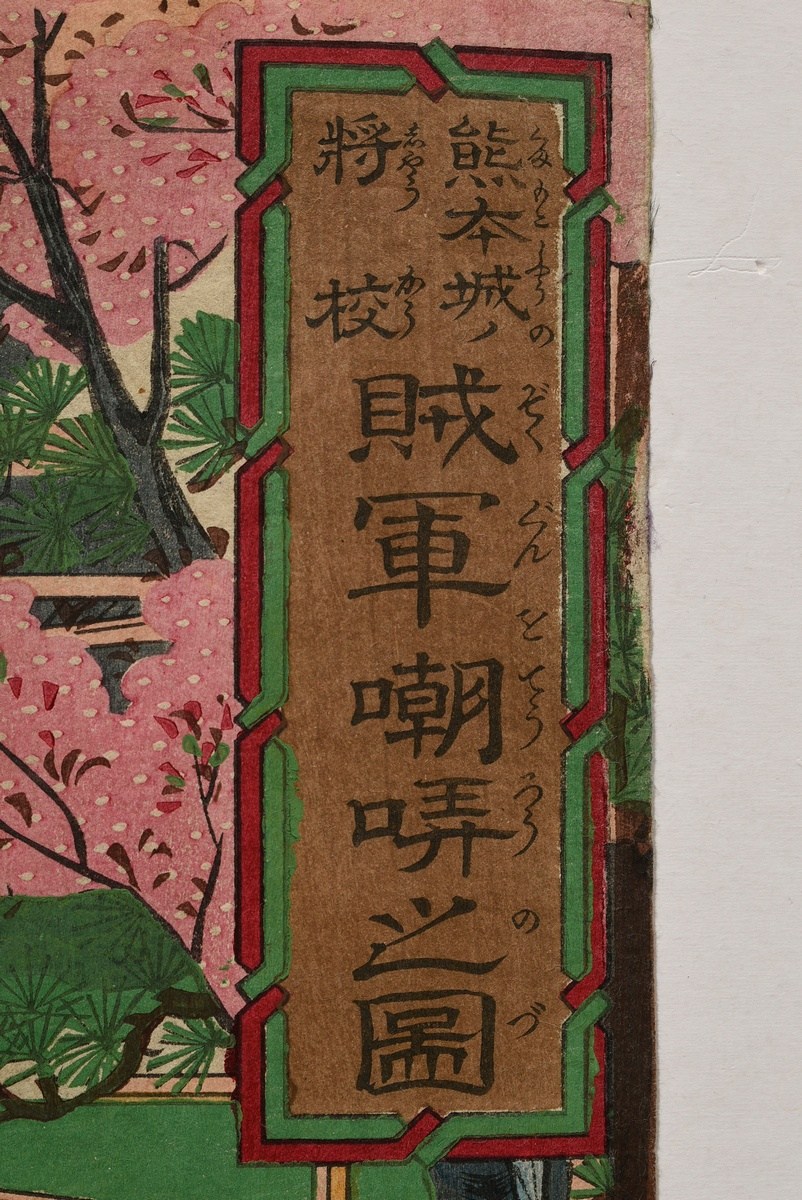 熊本城ノ
くまもとじやうの
将校
志やうかう
賊軍嘲哢之圖
ぞくぐんをてうろうのづ